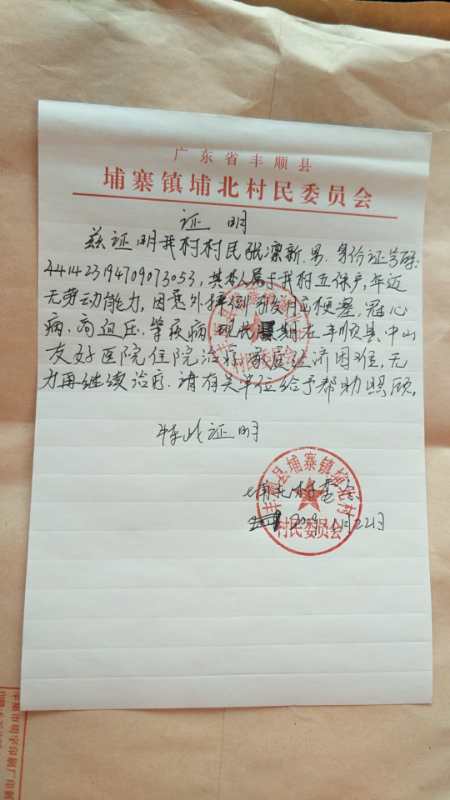 广东省丰顺县
埔寨镇埔北村民委员会
证明
兹证明我村村民张潭新.男.身份证号码:
441423194709073053,其本人属于我村五保户,年迈
无劳动能力,因意外摔倒引发心梗塞,冠心
病.高血压.等疾病.现长期在丰顺县.中山
友好医院住院治疗.家庭经济困难,无
力再继续治疗.请有关单位给予帮助照顾.
特此证明
埔北村委会
月22日
丰顺县埔寨镇埔北村
村民委员会